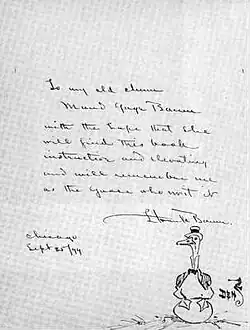 To my old chum
Maud Gage Baum
with the hope that she
will find this book
instructive and elevating
and will remember me
as the Goose who writ it
L. Frank Baum.
Chicago
Sept 25/99